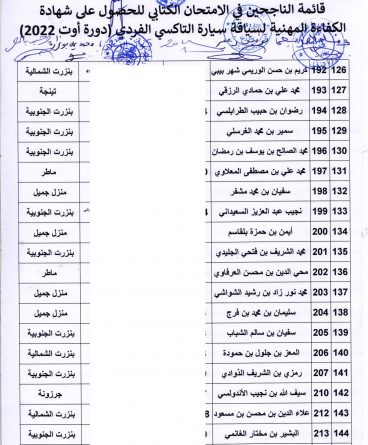 قائمة الناجحين في الامتحان الكتابي للحصول على شهادة
الكفاءة المهنية لسياقة سيارة التاكسي الفردي (دورة أوت 2022)
126 192 كريم بن حسن الوريمي شهر بيبي بنزرت الشمالية
127 193 محمد علي بن حمادي الرزقي تينجة
128 194 رضوان بن حبيب الطرابلسي بنزرت الجنوبية
129 195 سمير بن محمد الغرسلي بنزرت الجنوبية
130 196 محمد الصالح بن يوسف بن رمضان بنزرت الجنوبية
131 197 محمد علي بن مصطفى المعلاوي ماطر
132 198 سفيان بن محمد مشفر منزل جميل
133 199 نجيب عبد العزيز السعيداني بنزرت الجنوبية
134 200 أيمن بن حمزة بلقاسم منزل جميل
135 201 محمد الشريف بن فتحي الجليدي بنزرت الجنوبية
136 202 محي الدين بن محسن العرفاوي ماطر
137 203 محمد نور زاد بن رشيد الشواشي منزل جميل
138 204 سليمان بن محمد بن فرج منزل جميل
139 205 سفيان بن سالم الشباب بنزرت الجنوبية
140 206 المعز بن جلول بن حمودة بنزرت الشمالية
141 207 رمزي بن الشريف الذوادي بنزرت الجنوبية
142 210 سيف الله بن نجيب الأندولسي جرزونة
143 212 علاء الدين بن محسن بن مسعود بنزرت الشمالية
144 213 البشير بن مختار الغانمي بنزرت الجنوبية